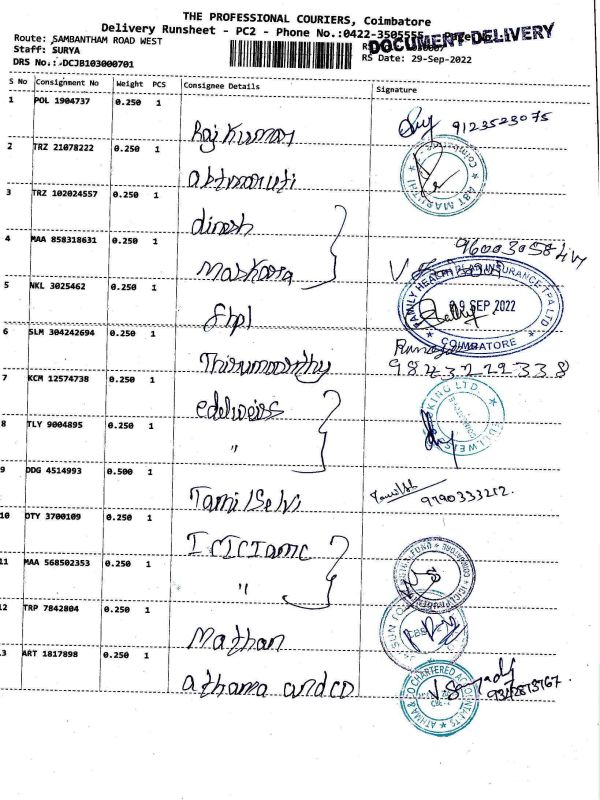 THE PROFESSIONAL COURIERS, Coimbatore
Delivery Runsheet - PC2 - Phone No.:0422-3505555
DOCUMENT DELIVERY
Route: SAMBANTHAM ROAD WEST
Staff: SURYA
RS Date: 29-Sep-2022
DRS No.: DCJB103000701
S No Consignment No Weight PCS Consignee Details Signature
1 POL 1904737 0.250 1 Raj Kumar 9123523075
2 TRZ 21078222 0.250 1 abtmaruti
ABT MARUTHI
3 TRZ 102024557 0.250 1 dinesh
4 MAA 858318631 0.250 1
5 NKL 3025462 0.250 1 fhpl
FAMILY HEALTH PLAN INSURANCE TPA LTD
SEP 2022
COIMBATORE
6 SLM 304242694 0.250 1 Thirumoorthy
7 KCM 12574738 0.250 1 edelweiss
8 TLY 9004895 0.250 1 "
9 DDG 4514993 0.500 1 Tamil Selvi
10 OTY 3700109 0.250 1 ICICI amc
11 MAA 568502353 0.250 1 "
12 TRP 7842804 0.250 1 Mathan
13 ART 1817898 0.250 1 athama and co
ATHMA & CO CHARTERED ACCOUNTANTS